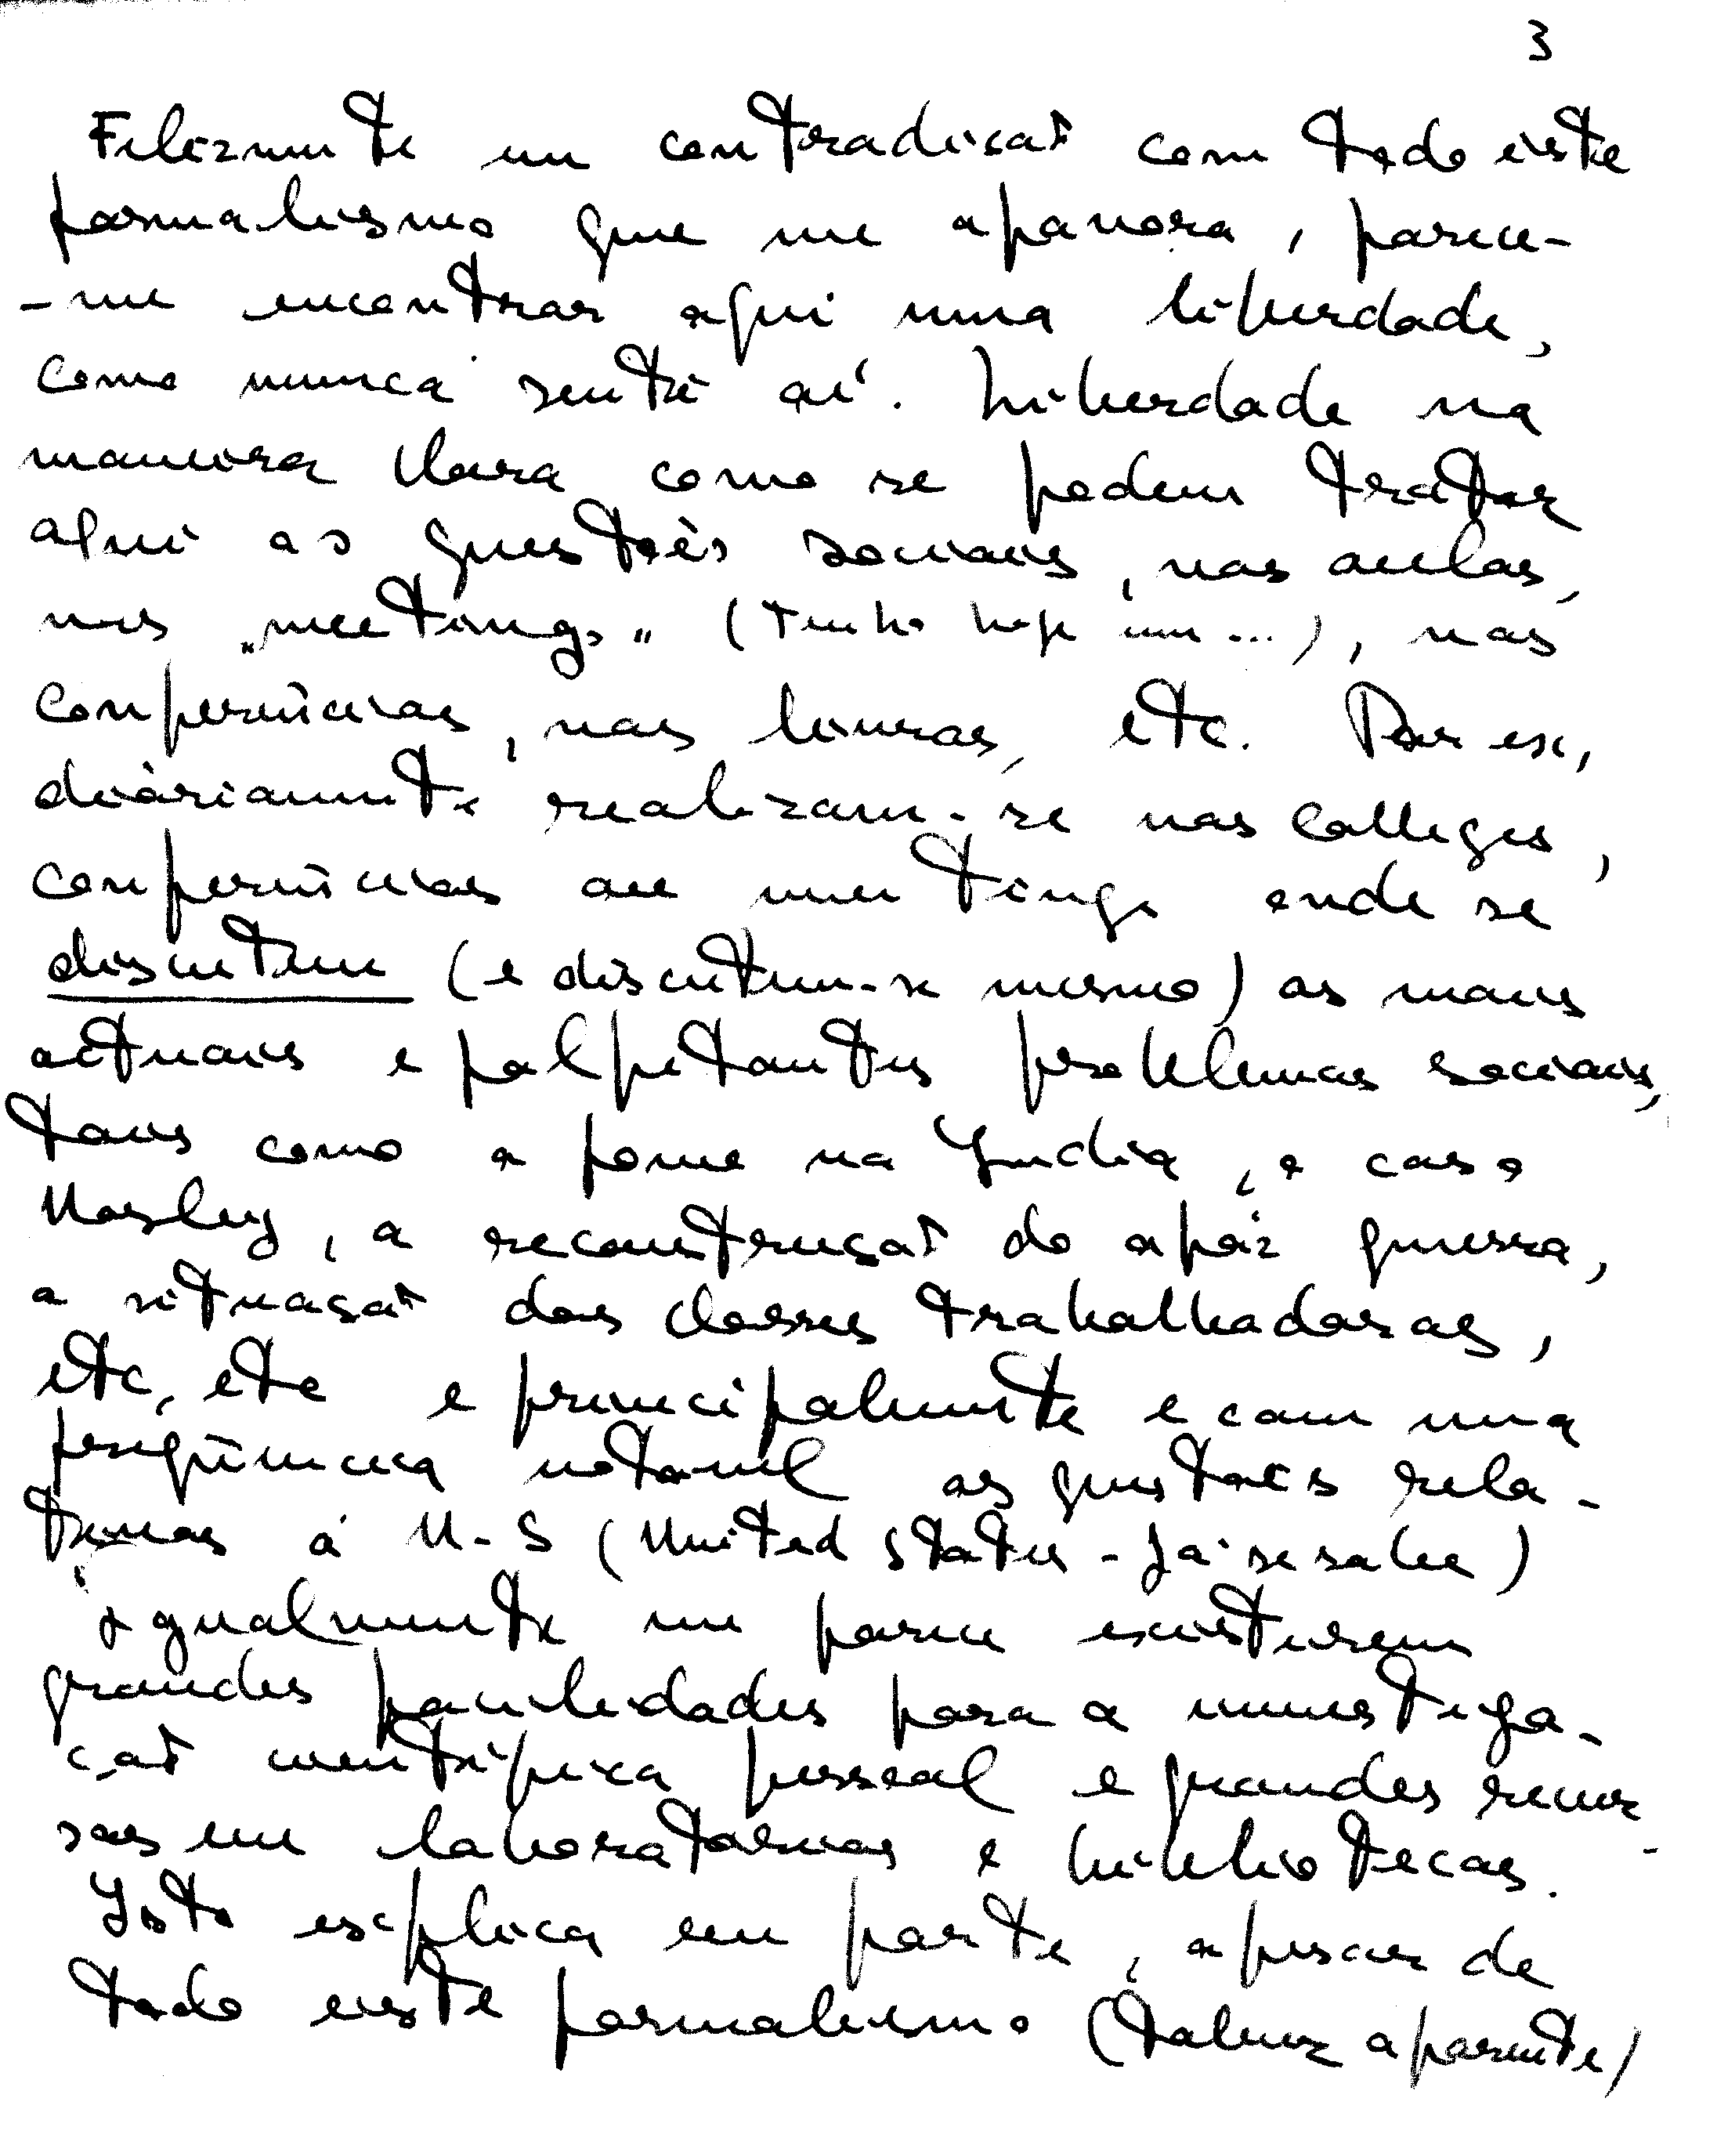 3
Felizmente em contradição com todo êste
formalismo que me apavora, parece-
-me encontrar aqui uma liberdade,
como nunca senti aí. Liberdade na
maneira clara como se podem tratar
aqui as questões sociais, nas aulas,
nos "meetings" (tenho hoje um...), nas
conferências, nos livros, etc. Por ex,
diàriamente realizam-se nos Colleges,
conferências ou meetings onde se
discutem (e discutem-se mesmo) os mais
actuais e palpitantes problemas sociais,
tais como a fome na India, o caso
Mosley, a reconstrução do após guerra,
a situação das classes trabalhadoras,
etc, etc e principalmente e com uma
freqüência notavel as questões rela-
tivas á U-S (United States - já se sabe)
Igualmente me parece existirem
grandes facilidades para a investiga-
ção cientifica pessoal e grandes recur-
sos em laboratorios e bibliotecas.
Isto explica em parte, apesar de
todo êste formalismo (talvez aparente)